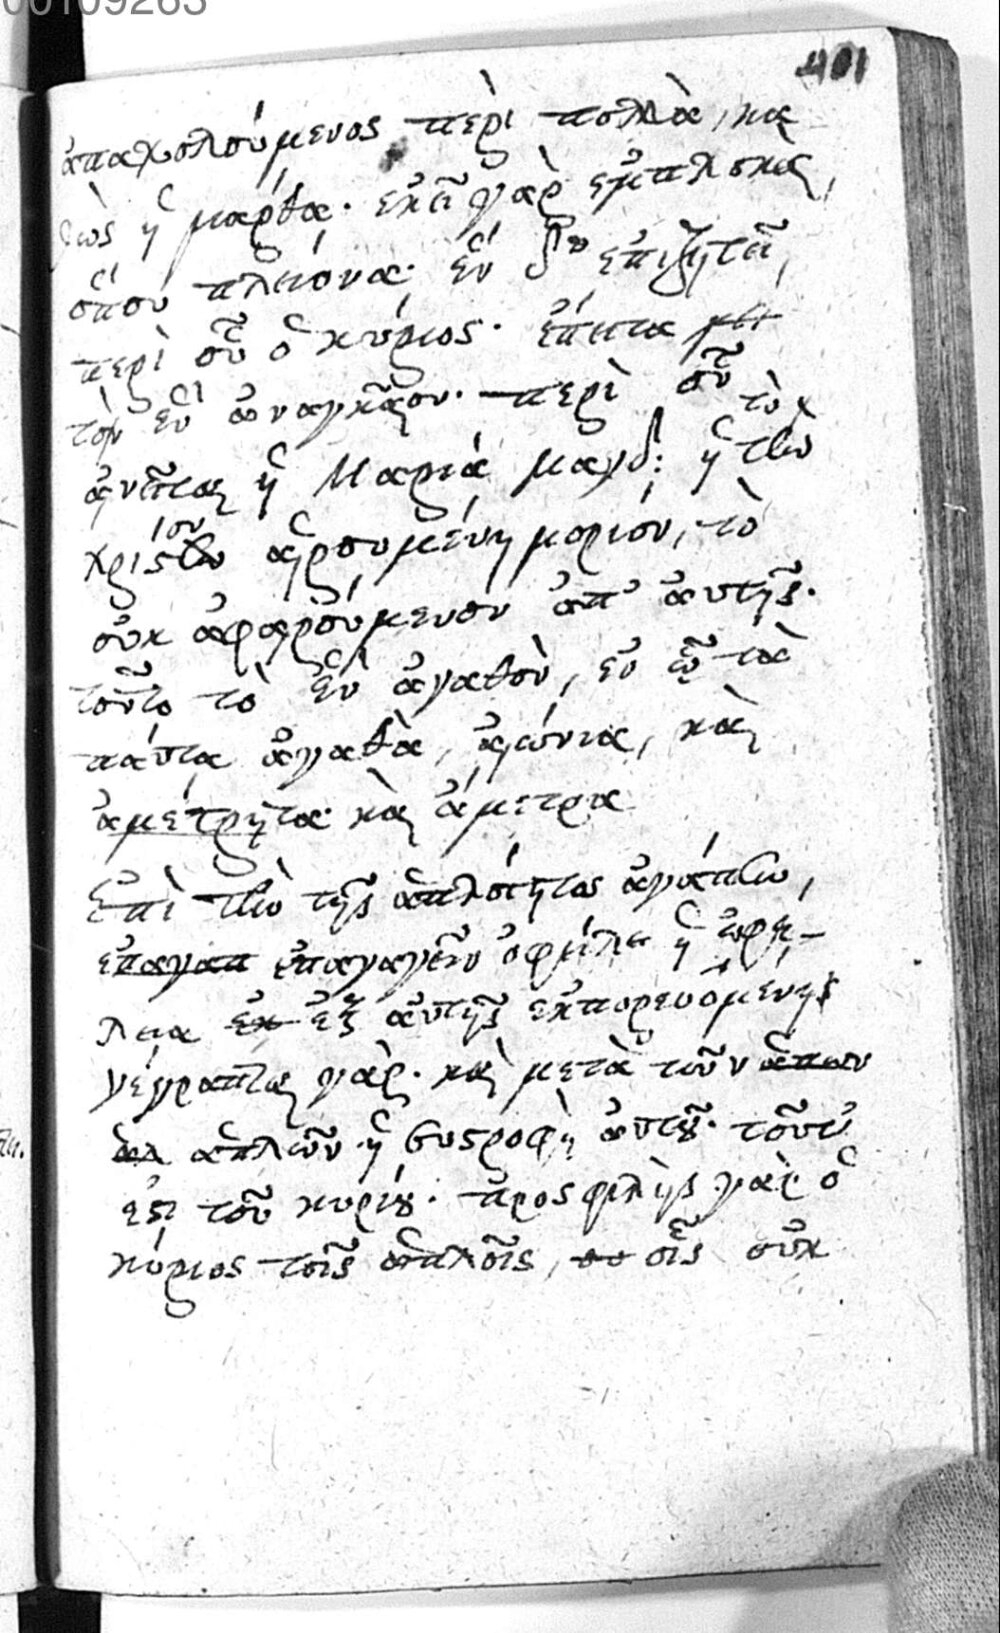 00109263
401
ἀπαχολούμενος περὶ πολλὰ, κα
θὼς ἡ μάρθα. ἐκεῖ γὰρ ἐμπλοκὰς,
ὅπου πλείονα. ἓν δὲ ἐπιζητεῖ,
περὶ οὗ ὁ κύριος. ἔπειτα
τὸν ἓν ἀναγκαῖον. περὶ οὗ τὸ
ἡ Μαρία μαγδ: ἡ τὴν
χριστὸν αἱρουμένη μορίου, τὸ
οὐκ ἀφαιρούμενον ἀπ' ἀυτῆς.
τοῦτο τὸ ἓν ἀγαθὸν, ἐν ᾧ τὰ
πάντα ἀγαθὰ, αἰώνια, καὶ
ἀμέτρητα καὶ ἄμετρα
Ἐπὶ τὴν τῆς ἁπλότητος ἀγάπην,
ἐπαγαπ ἐπαγαγεῖν ὀφείλει ἡ ὠφε-
λεια ἐκ ἐξ ἀυτῆς ἐκπορευομένης
γέγραπται γὰρ. καὶ μετὰ τῶν ἁπων
ἁλ ἁπλῶν ἡ συστροφὴ ἀυτοῦ. τοῦτ'
ἐστι τοῦ κυρίου. προσφιλὴς γὰρ ὁ
κύριος τοῖς ἁπλοῖς, οἷς οὐκ